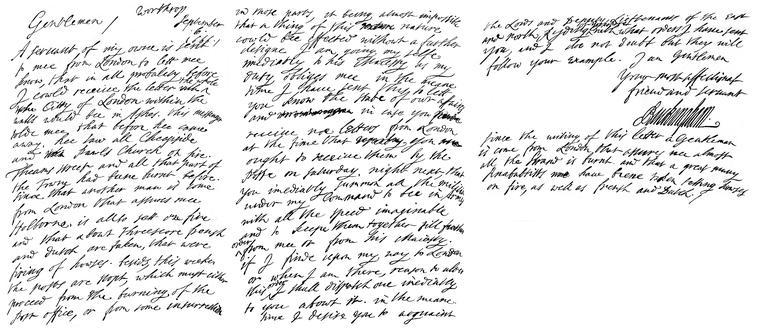 Worthrop
September
6.
Gentlemen /
A servant of my owne is sent
to mee from London to lett mee
know, that in all probabily before
I could receive the letter the whole
Citty of London within the
wall would bee in Ashes. this messenger
tolde mee that before hee came
away hee saw all Cheapside
and Pauls Church on fire.
Theams street and all that part of
the Towne had beene burnt before.
Since that another man is come
from London that assures mee
Holborne is allso sett on fire
and that about threescore french
and dutch, are taken, that were
firing of houses. besides this weeke
the posts are stopt, which must either
proceed from the burning of the
post office, or from some insurrection
in those parts, it being allmost impossible
that a thing of this nature
could bee effected without a further
designe. I am going my selfe
imediatly to his Majesty as my
duty obliges mee in the meane
time I have sent this to lett
you know the state of our affairs
and in case you
receive no letters from London
at the time that you
ought to receive them by the
Post on saturday night next that
you imediatly summon all the militia
under my Command to bee in Arms
with all the speed imaginable
and to keepe them together till further
orders from mee or from his Majesty.
if I finde upon my way to London
or when I am there, reason to alter
this order I shall dispatch one imediatly
to you about it. in the meane
time I desire you to acquaint
the Lords and Deputy Lieutenants of the East
and north Ridings with what orders I have sent
you, and I doe not doubt but they will
follow your example. I am Gentlemen
Your most affectionat
friend and servant
Buckingham.
Since the writing of this letter a Gentleman
is come from London that assures mee allmost
all the Strand is burnt and that a great many
Anabaptists have beene taken setting houses
on fire, as well as french and Dutch.